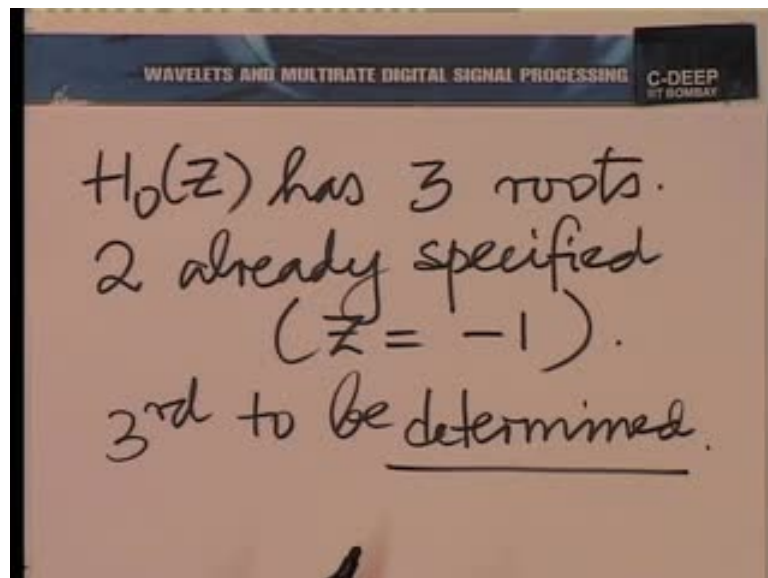 WAVELETS AND MULTIRATE DIGITAL SIGNAL PROCESSING
C-DEEP
IIT BOMBAY
H₀(Z) has 3 roots.
2 already specified
(Z = -1).
3rd to be determined.